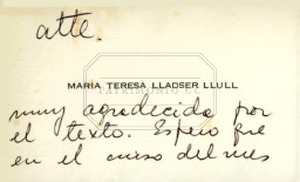 atte.
PATRIMONIO UC
MARIA TERESA LLADSER LLULL
muy agradecida por
el texto. Espero que
en el curso del mes